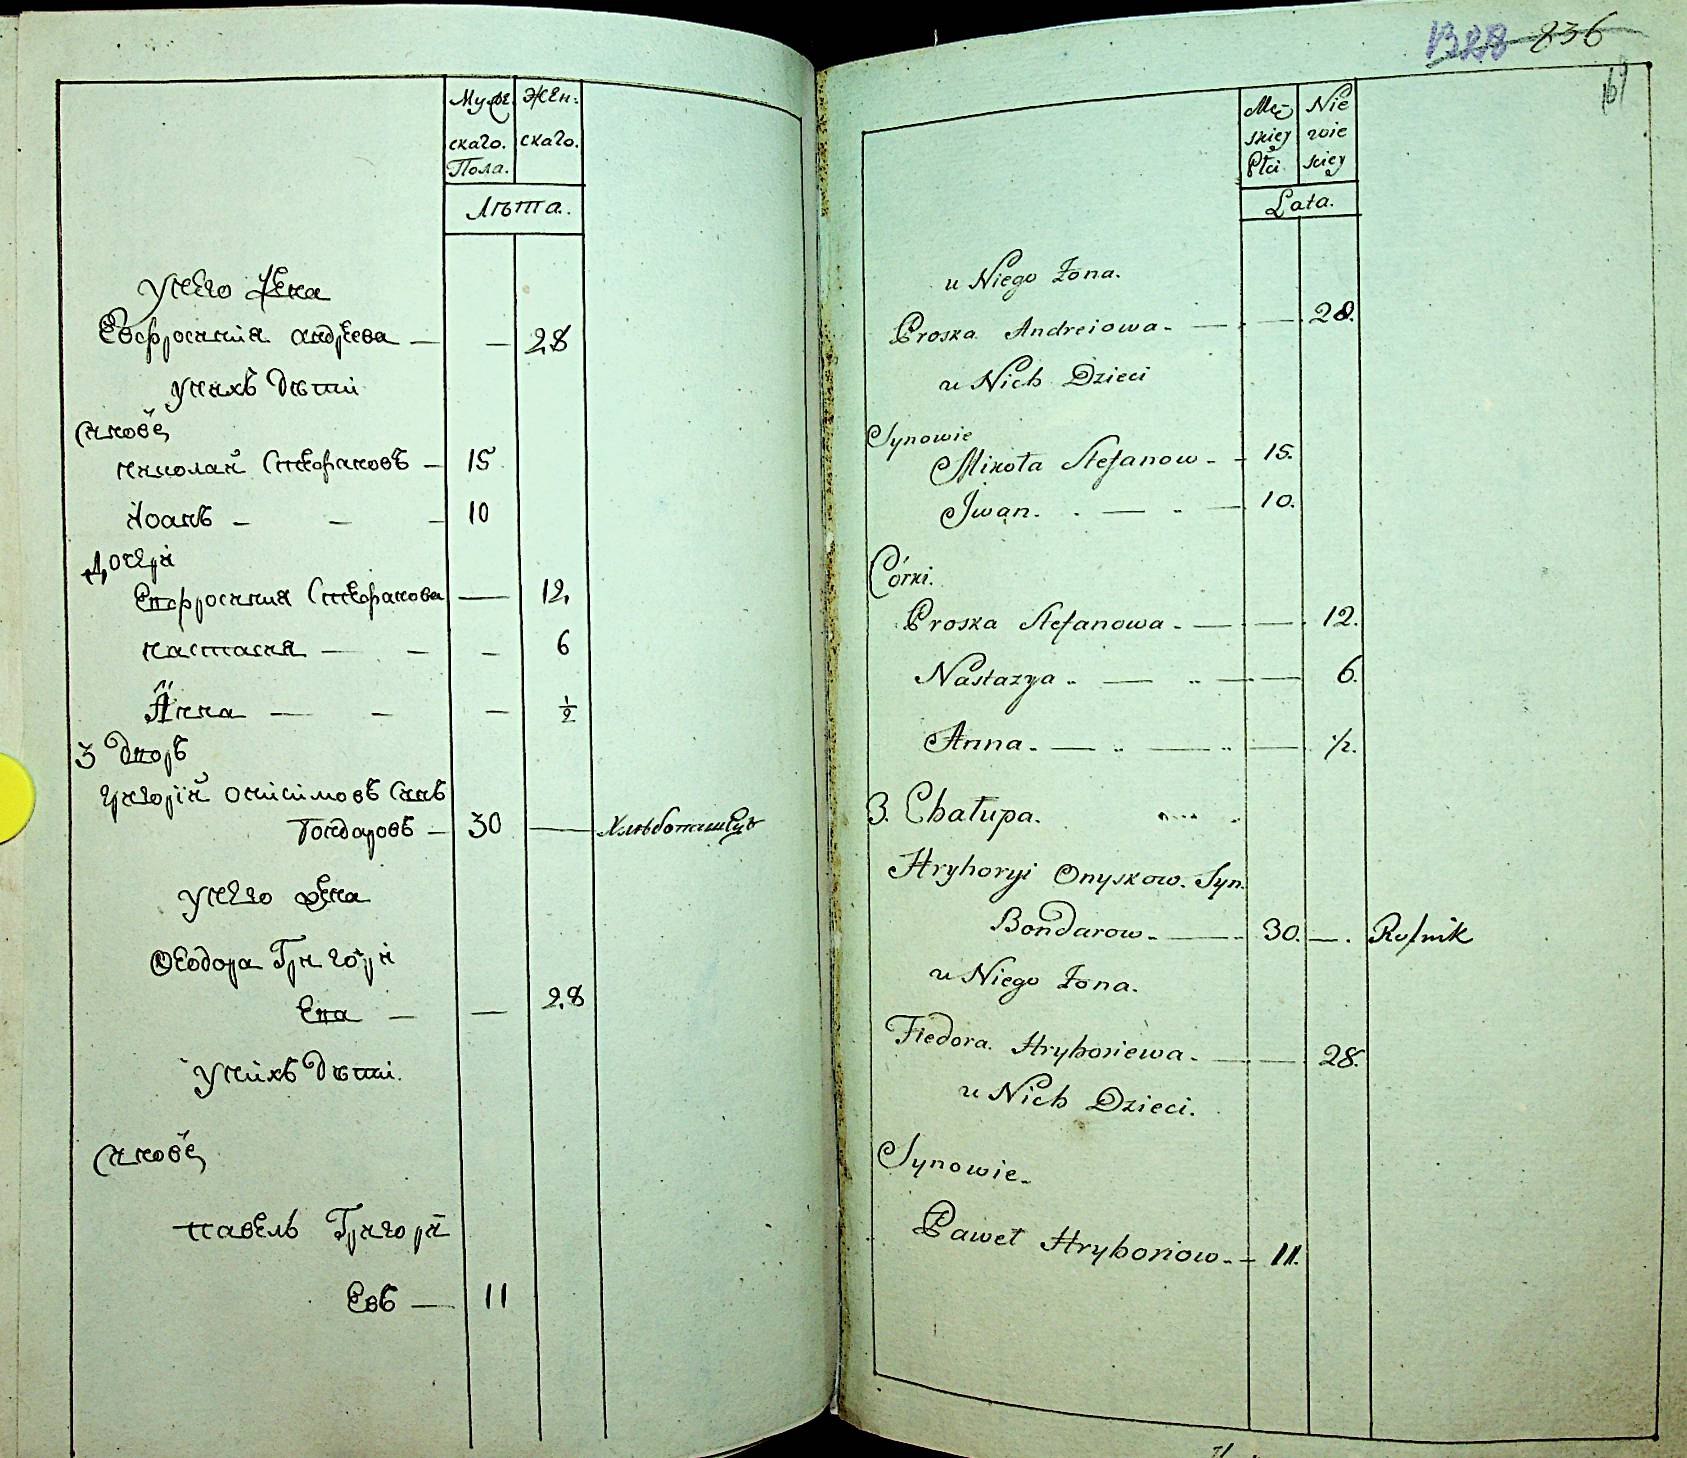 Мужe:
скаго.
Пола.
Жен:
скаго.
Лѣта.
у него жена
Евфросинія андреева — — 28
у нихъ дѣти
сынове
николай Стефановъ — 15
Іоанъ — — — 10
Дочери
Евфросиния Стефанова — 12.
настасия — — — 6
Анна — — — ½
3 Дворъ
григорій онисимовъ синъ
бондаровъ — 30 — Хлѣбопашецъ
у него жена
Феодора Григорі
ева — — 28
у нихъ дѣти.
сынове
павелъ Григорі
евъ — 11
836
Mę-
skiey
Płci.
Nie
wie
sciey
Lata.
u Niego Żona.
Proska Andreiowa. — — 28.
u Nich Dzieci
Synowie
Mikoła Stefanow - - 15.
Jwan. . — „ — 10.
Córki.
Proska Stefanowa - — — 12.
Nastazya „ — „ — — 6.
Anna. — „ — „ — ½.
3. Chałupa.
Hryhoryi Onyskow. Syn.
Bondarow. — 30. — . Rolnik
u Niego Żona.
Fiedora. Hryhoriewa. — — 28.
u Nich Dzieci.
Synowie.
Paweł Hryhoriow. - 11.